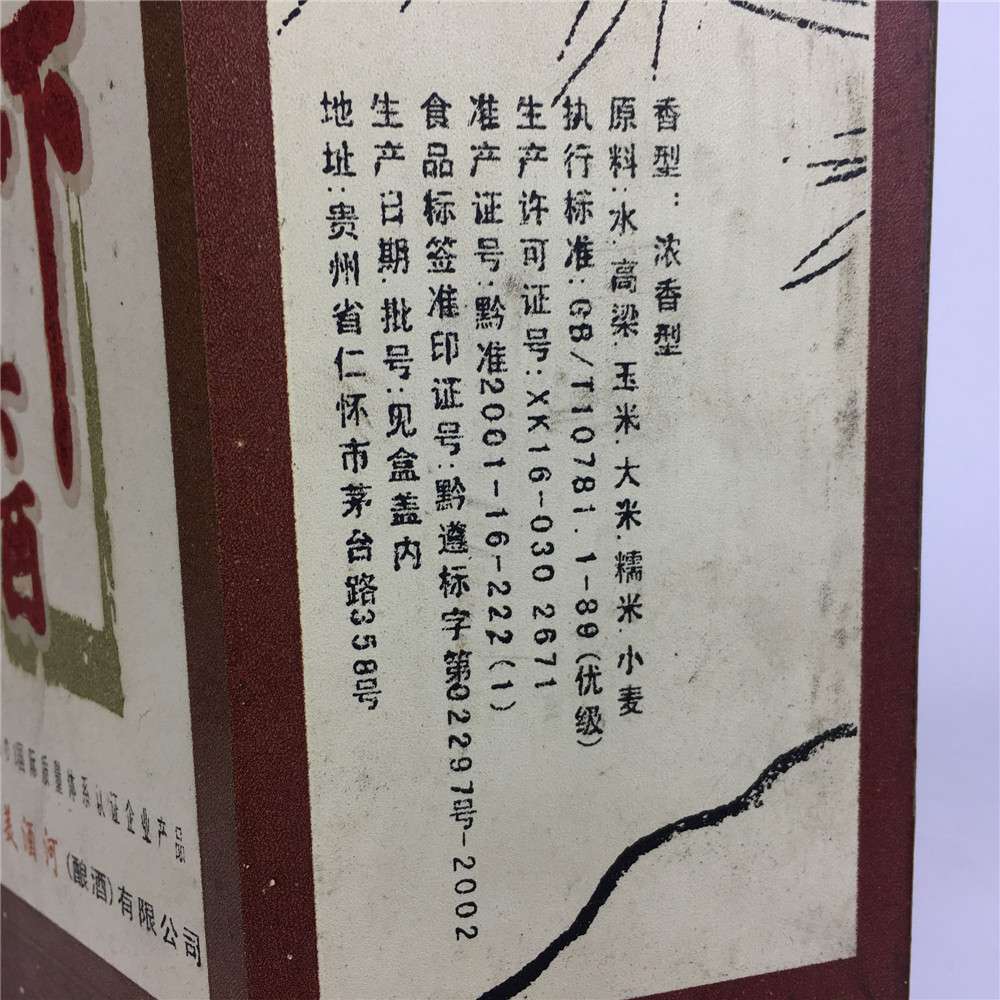 香型：浓香型
原料:水.高粱.玉米.大米.糯米.小麦
执行标准:GB/T10781.1-89(优级)
生产许可证号:XK16-030 2671
准产证号:黔准2001-16-222(1)
食品标签准印证号:黔遵标字第02297号-2002
生产日期.批号:见盒盖内
地址:贵州省仁怀市茅台路358号
酒
国际质量体系认证企业产品
酒河(酿酒)有限公司